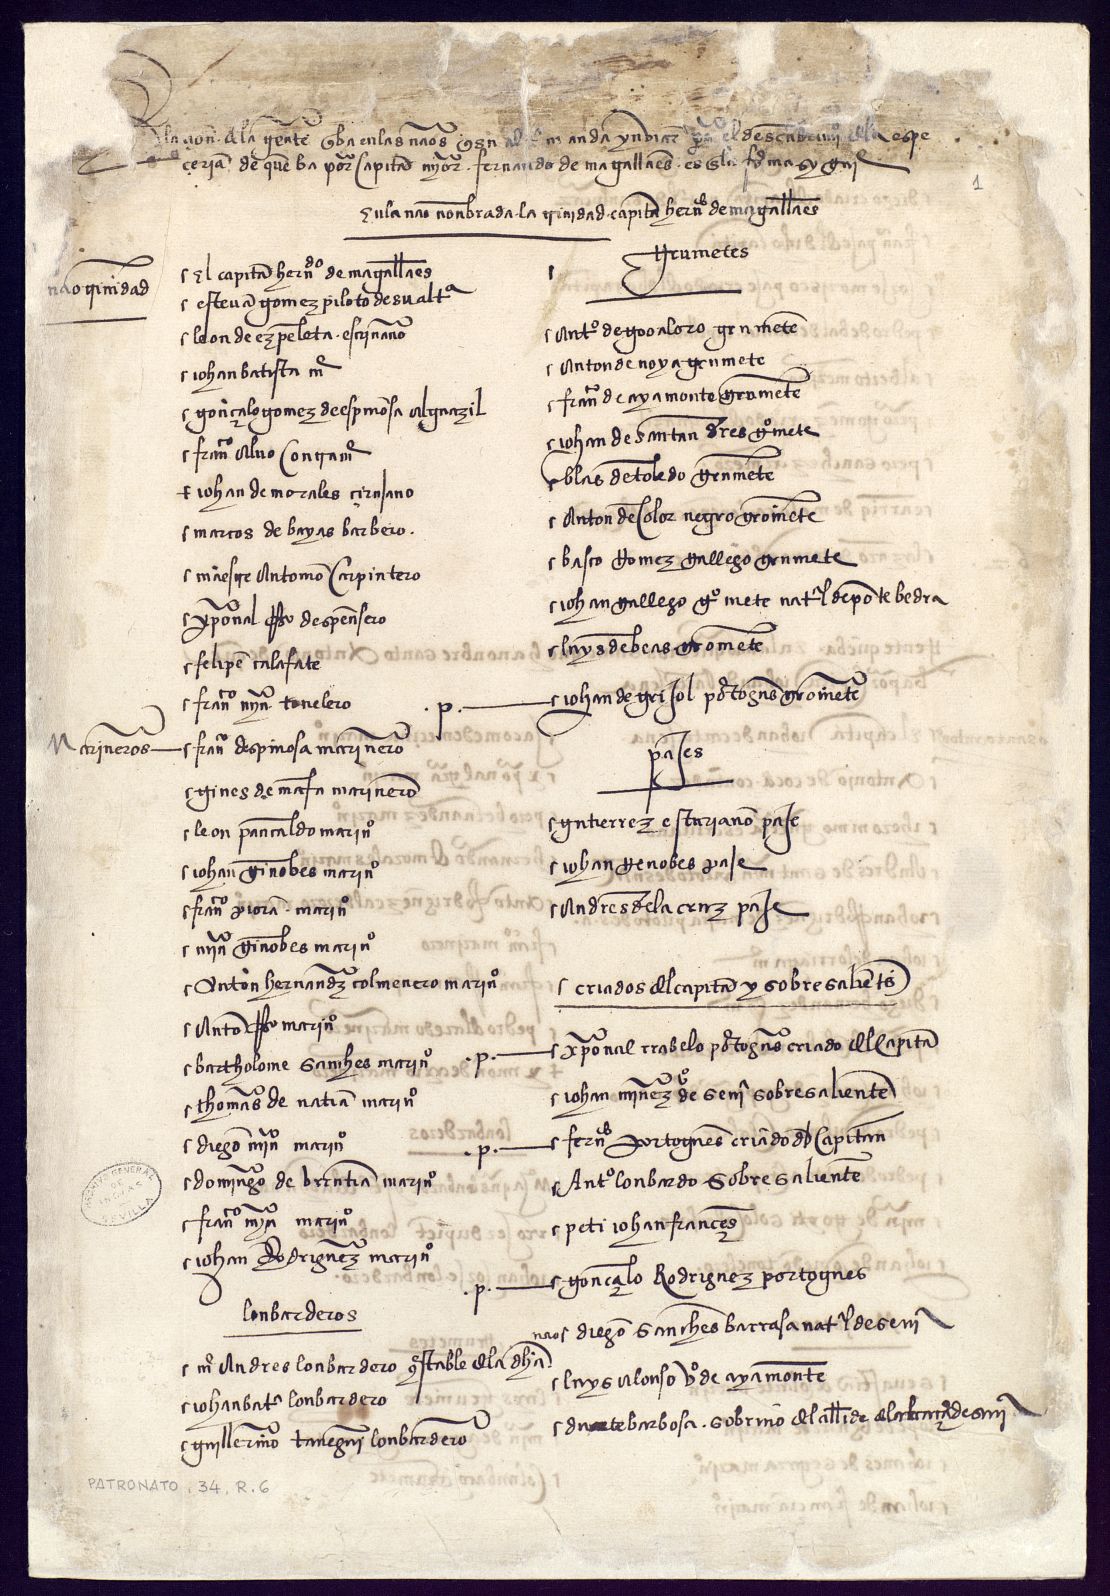 Relaçion de la gente que ba en las naos que su al. manda ynbiar para el descubrimiº de la espe
çeria de que ba por capitan mayor fernando de magallaes es la
1
En la nao nonbrada la trinidad capitan herndo de magallaes
nao trinidad
El capitan herndo de magallaes
estevan gomez piloto de su alta
leon de ezpeleta escrivano
johan batista mº
gonçalo gomez de espinosa alguazil
franco alvo contramº
+ johan de morales çirujano
marcos de bayas barbero
maestre antonio carpintero
xpoval Rº despensero
felipe calafate
franco myn tonelero
Marineros
franco despinosa marinero
gines de mafra marinero
leon pancaldo marinº
johan ginobes marinº
franco piora marinº
myn ginobes marinº
Anton hernandez colmenero marinº
Anton Rº marinº
bartholome sanches marinº
thomas de natia marinº
diego myn marinº
domingo de brrutia marinº
franco myn marinº
johan Rodriguez marinº
lonbarderos
mº Andres lonbardero condestable de la dha
johan batª lonbardero
guillermo tanegui lonbardero
Grumetes
Antº de goo aloro grumete
Anton de noya grumete
franco de ayamonte grumete
johan de santandres grumete
blas de toledo grumete
Anton de color negro gromete
basco gomez gallego grumete
johan gallego grumete natural de pontebedra
luys de beas gromete
.p. johan de grijol portogues gromete
pajes
gutierrez esturiano paje
johan genobes paje
Andres de la cruz paje
criados del capitan y sobresalientes
.p. xpoval rrabelo portogues criado del capitan
johan minez de sevi sobresaliente
.p. fernº portogues criado del capitan
Antº lonbardo sobresaliente
peti johan frances
.p. gonçalo Rodriguez portogues
diego sanches barrasa natural de sevi
luys alonso vº de ayamonte
duarte barbosa sobrino del allide de alcaçar de sevi
ARCHIVO GENERAL DE INDIAS SEVILLA
PATRONATO, 34, R. 6